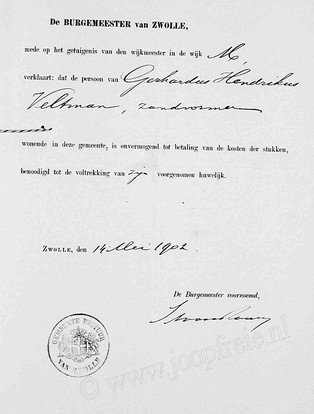 De BURGEMEESTER van ZWOLLE,
mede op het getuigenis van den wijkmeester in de wijk M,
verklaart: dat de persoon van Gerhardus Hendrikus
Veltman, zandvormer
wonende in deze gemeente, is onvermogend tot betaling van de kosten der stukken,
benoodigd tot de voltrekking van zijn voorgenomen huwelijk.
ZWOLLE, den 14 Mei 1902.
De Burgemeester voornoemd,
GEMEENTE BESTUUR
VAN ZWOLLE
© www.joopfreie.nl